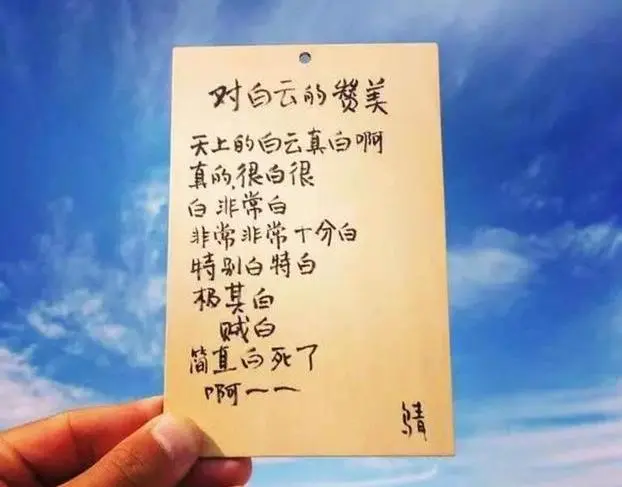 对白云的赞美
天上的白云真白啊
真的,很白很
白非常白
非常非常十分白
特别白特白
极其白
贼白
简直白死了
啊——